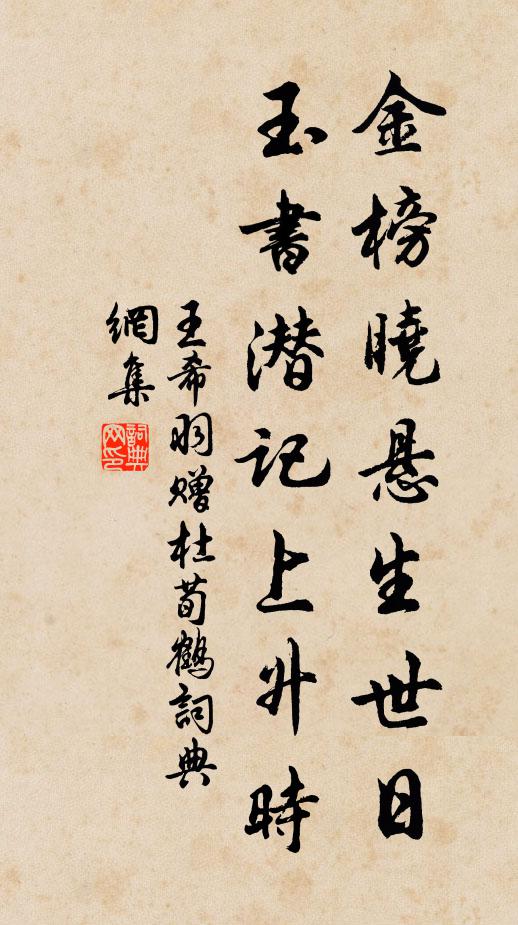 金榜曉懸生世日
玉書潛記上升時
王希羽贈杜荀鶴詞典
網集
詞典網印